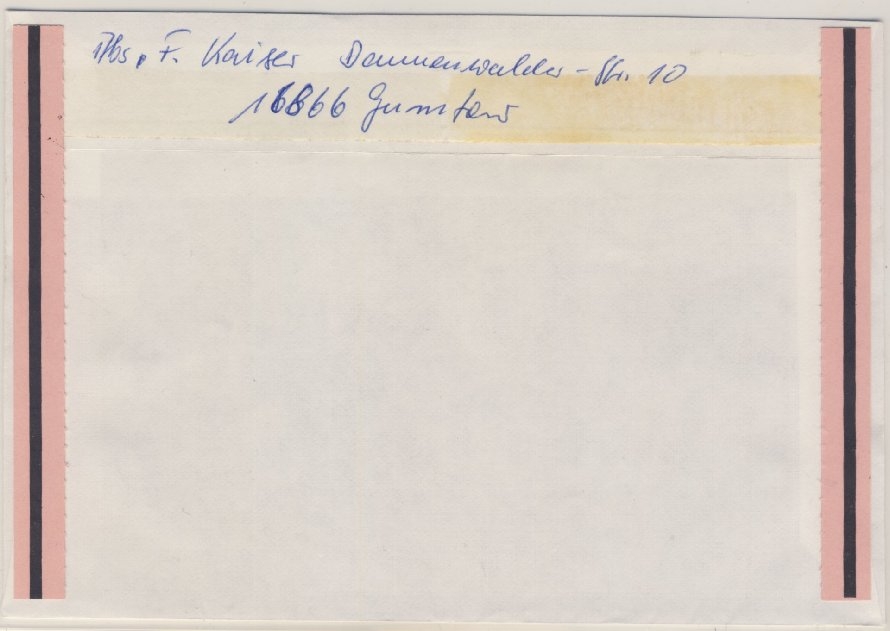 Abs. F. Kaiser Dannenwalder-Str. 10
16866 Gumtow